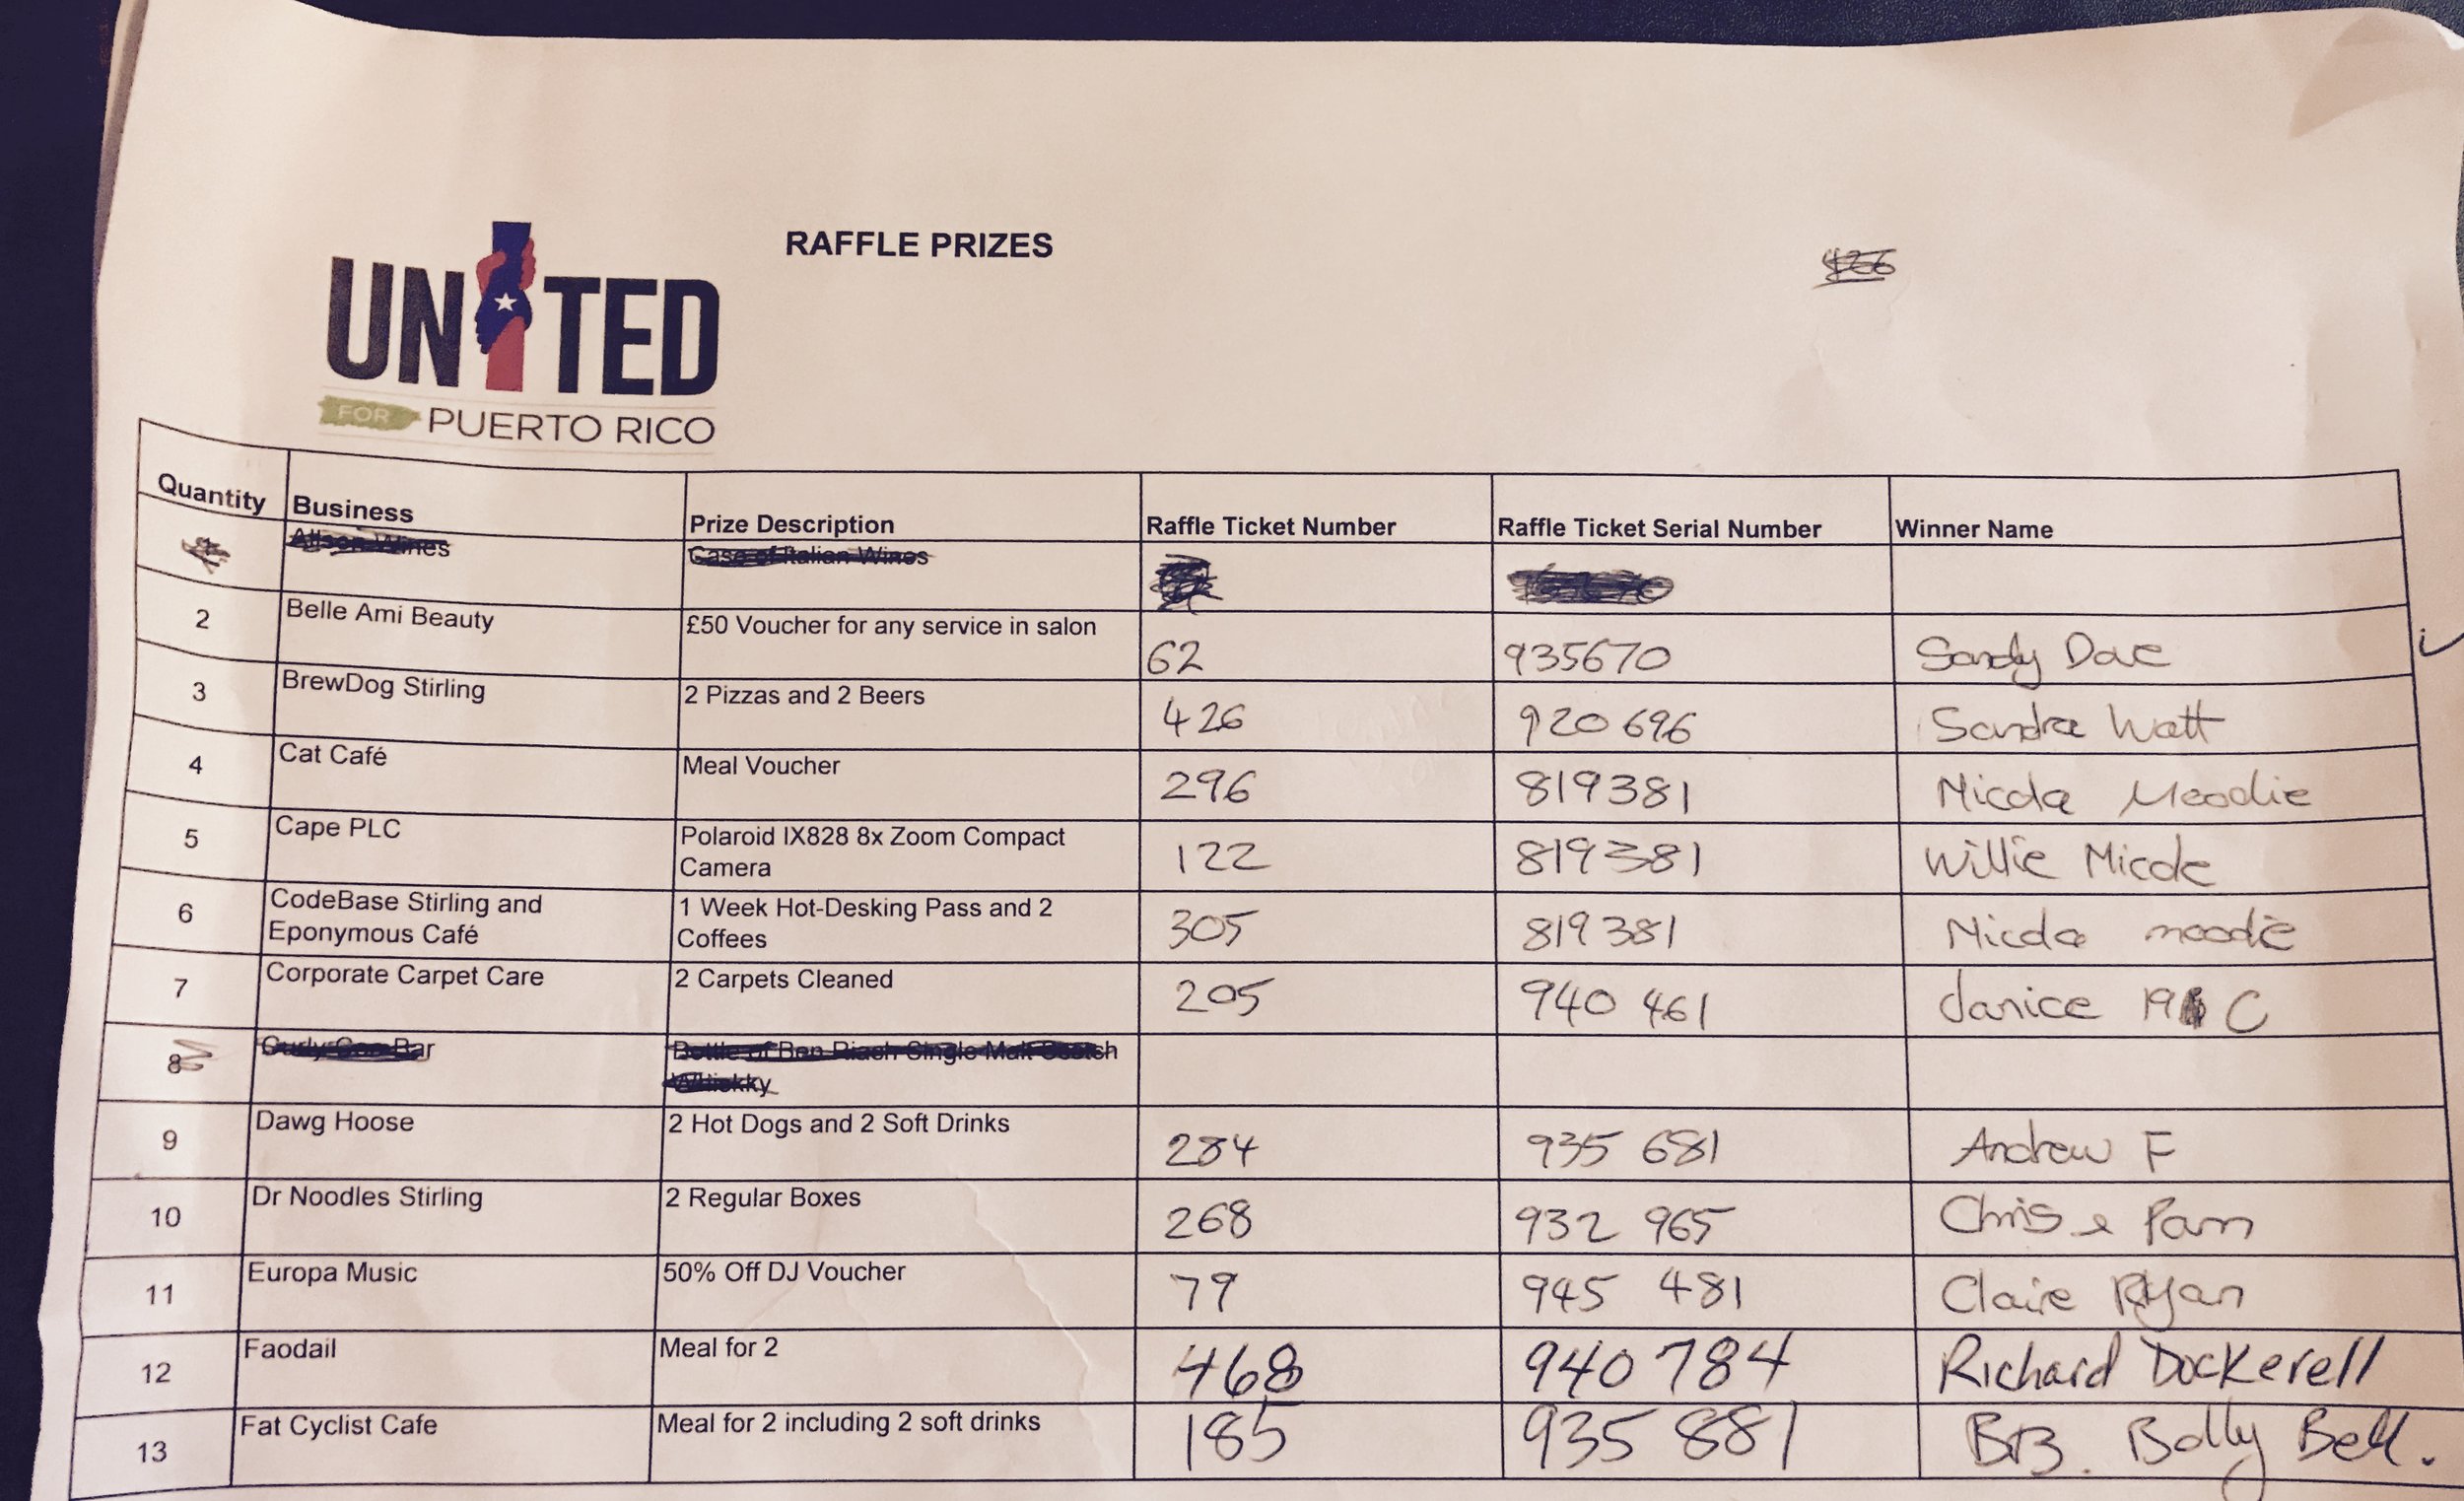 RAFFLE PRIZES
UNITED
FOR PUERTO RICO
Quantity Business Prize Description Raffle Ticket Number Raffle Ticket Serial Number Winner Name
Wines Case of Italian Wines
2 Belle Ami Beauty £50 Voucher for any service in salon 62 935670 Sandy
3 BrewDog Stirling 2 Pizzas and 2 Beers 426 920 696 Sandra Watt
4 Cat Café Meal Voucher 296 819381 Nicola Moodie
5 Cape PLC Polaroid IX828 8x Zoom Compact Camera 122 819381 Willie
6 CodeBase Stirling and Eponymous Café 1 Week Hot-Desking Pass and 2 Coffees 305 819381 Nicola moodie
7 Corporate Carpet Care 2 Carpets Cleaned 205 940 461 Janice C
8 Bar Bottle of Ben Riach Single Malt Scotch
9 Dawg Hoose 2 Hot Dogs and 2 Soft Drinks 284 935 681 Andrew F
10 Dr Noodles Stirling 2 Regular Boxes 268 932 965 Chris & Pam
11 Europa Music 50% Off DJ Voucher 79 945 481 Claire Ryan
12 Faodail Meal for 2 468 940 784 Richard Dockerell
13 Fat Cyclist Cafe Meal for 2 including 2 soft drinks 185 935 881 Bolly Bell.